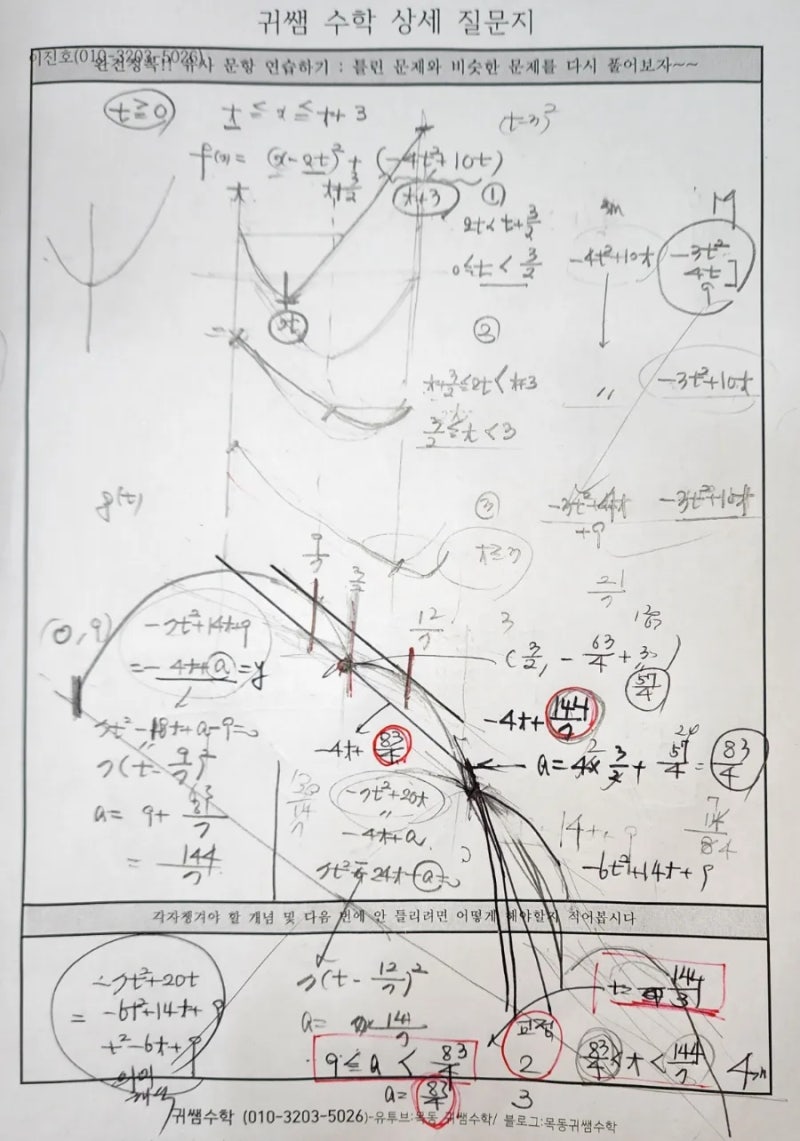 귀쌤 수학 상세 질문지
이진호(010-3203-5026)
유사 문항 연습하기 : 틀린 문제와 비슷한 문제를 다시 풀어보자~~
t≥0
t ≤ x ≤ t+3
(t-3)²
f(x)= (x-2t)² + (-4t²+10t)
t
t+3/2
t+3
①
2t<t+3/2
0≤t<3/2
m
M
-4t²+10t
-3t²
4t
9
2t
②
t+3/2≤2t<t+3
3/2≤t<3
〃
-3t²+10t
g(t)
③
t≥3
-3t²+4t
+9
-3t²+10t
9/7
3/2
12/7
3
21/2
(0, 9)
-7t²+14t+9
=-4t+a=y
(3/2, -63/4+30)
57/4
-4t+144/7
-4t+83/4
7t²-18t+a-9=0
7(t-9/7)²
a= 9+81/7
63
= 144/7
a=4×3/2+57/4=83/4
24
-7t²+20t
〃
-4t+a
7t²-24t+a=0
-6t²+14t+9
각자챙겨야 할 개념 및 다음 번에 안 틀리려면 어떻게 해야할지 적어봅시다
-7t²+20t
= -6t²+14t+9
t²-6t+9
7(t-12/7)²
a= 144/7
9≤a<83/4
a=83/4
교점
2
3
t= 144/3
83/4<t<144/7
4개
귀쌤수학 (010-3203-5026)-유투브:목동 귀쌤수학/ 블로그:목동귀쌤수학